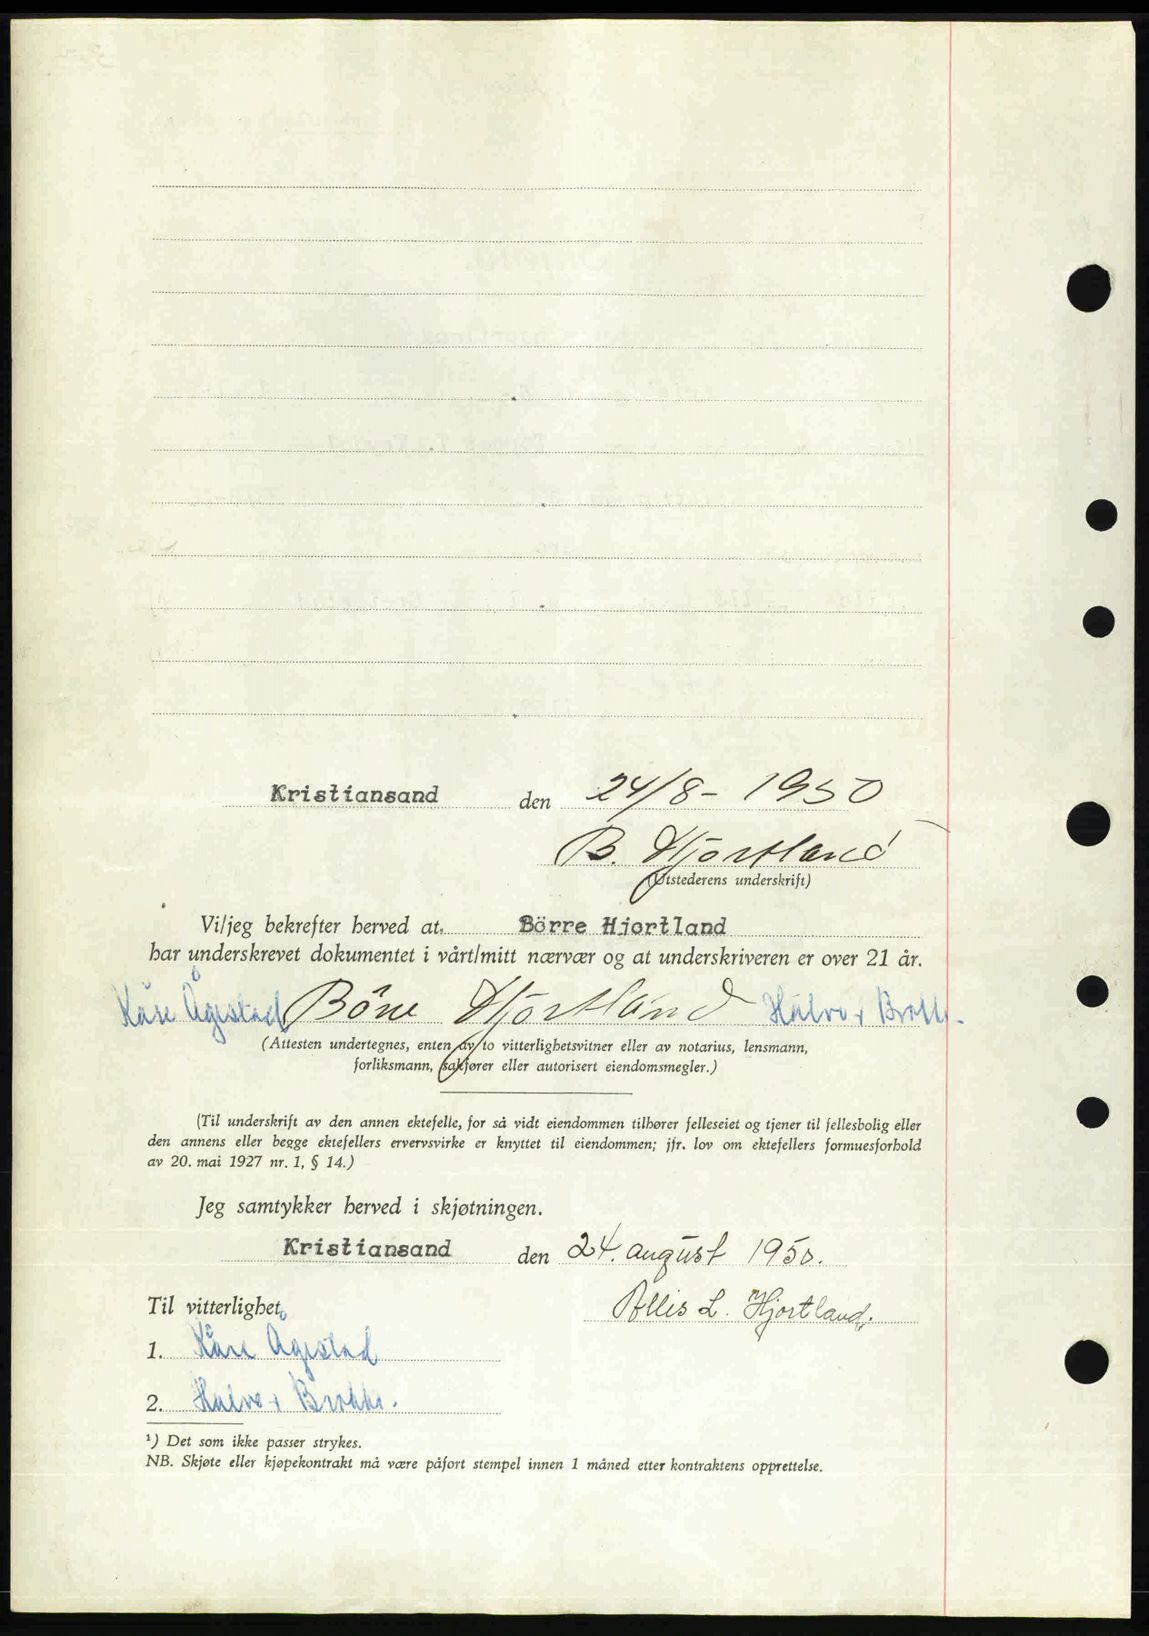 Kristiansand den 24/8- 1950
B. Hjortland
(Utstederens underskrift)
Vi/jeg bekrefter herved at Börre Hjortland
har underskrevet dokumentet i vårt/mitt nærvær og at underskriveren er over 21 år.
Kåre Ågestad Börre Hjortland Halvor
(Attesten undertegnes, enten av to vitterlighetsvitner eller av notarius, lensmann,
forliksmann, sakfører eller autorisert eiendomsmegler.)
(Til underskrift av den annen ektefelle, for så vidt eiendommen tilhører felleseiet og tjener til fellesbolig eller
den annens eller begge ektefellers ervervsvirke er knyttet til eiendommen; jfr. lov om ektefellers formuesforhold
av 20. mai 1927 nr. 1, § 14.)
Jeg samtykker herved i skjøtningen.
Kristiansand den 24. august 1950.
Til vitterlighet
L. Hjortland.
1. Kåre Ågestad
2. Halvor
¹) Det som ikke passer strykes.
NB. Skjøte eller kjøpekontrakt må være påført stempel innen 1 måned etter kontraktens opprettelse.